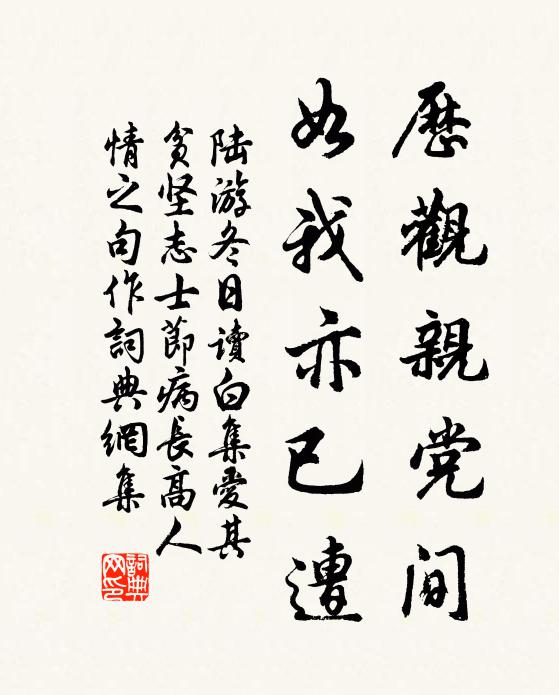 歷觀親党间
如我亦已遭
陸游冬日讀白集愛其
貧坚志士節病長高人
情之句作詞典網集
詞典网印